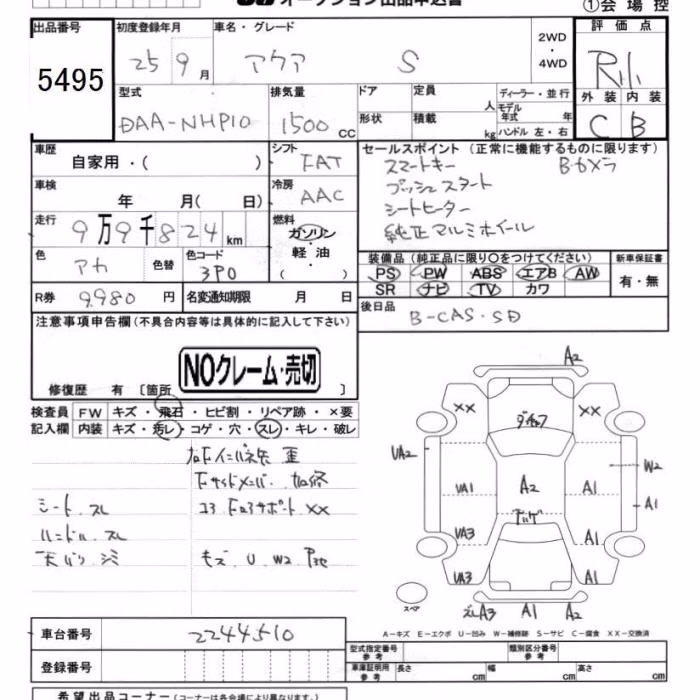 オークション出品申込書
①会場控
出品番号 初度登録年月 車名・グレード 2WD・4WD 評価点
5495 25 9月 アクア S R
外装 内装
C B
型式 排気量 ドア 定員 人 ディーラー・並行
DAA-NHP10 1500 CC 形状 積載 kg モデル年式 年
ハンドル 左・右
車歴 自家用・( ) シフト FAT セールスポイント (正常に機能するものに限ります)
スマートキー B・カメラ
プッシュスタート
シートヒーター
純正アルミホイール
車検 年 月( 日) 冷房 AAC
走行 9万9千824km 燃料 ガソリン・軽油・( )
色 アカ 色替 色コード 3P0
装備品 (純正品に限り○をつけてください) 新車保証書
PS PW ABS エアB AW 有・無
SR ナビ TV カワ
R券 9980円 名変通知期限 月 日
後日品 B-CAS・SD
注意事項申告欄 (不具合内容等は具体的に記入して下さい)
NOクレーム・売切
修復歴 有 [箇所 ]
検査員 FW キズ・飛石・ヒビ割・リペア跡・×要
記入欄 内装 キズ・汚レ・コゲ・穴・スレ・キレ・破レ
シート スレ
ハンドル スレ
天バリ シミ
キズ U W2
A2
XX XX
UA2 W2
UA1 A2 A1 A1
UA3 A1
UA3 A1
スペア
A3 A1 A2
A-キズ E-エクボ U-凹み W-補修跡 S-サビ C-腐食 XX-交換済
車台番号 2244510
登録番号
型式指定番号 参考 類別区分番号 参考
車庫証明用 参考 長さ cm 幅 cm 高さ cm
希望出品コーナー (コーナーは各会場により異なります。)